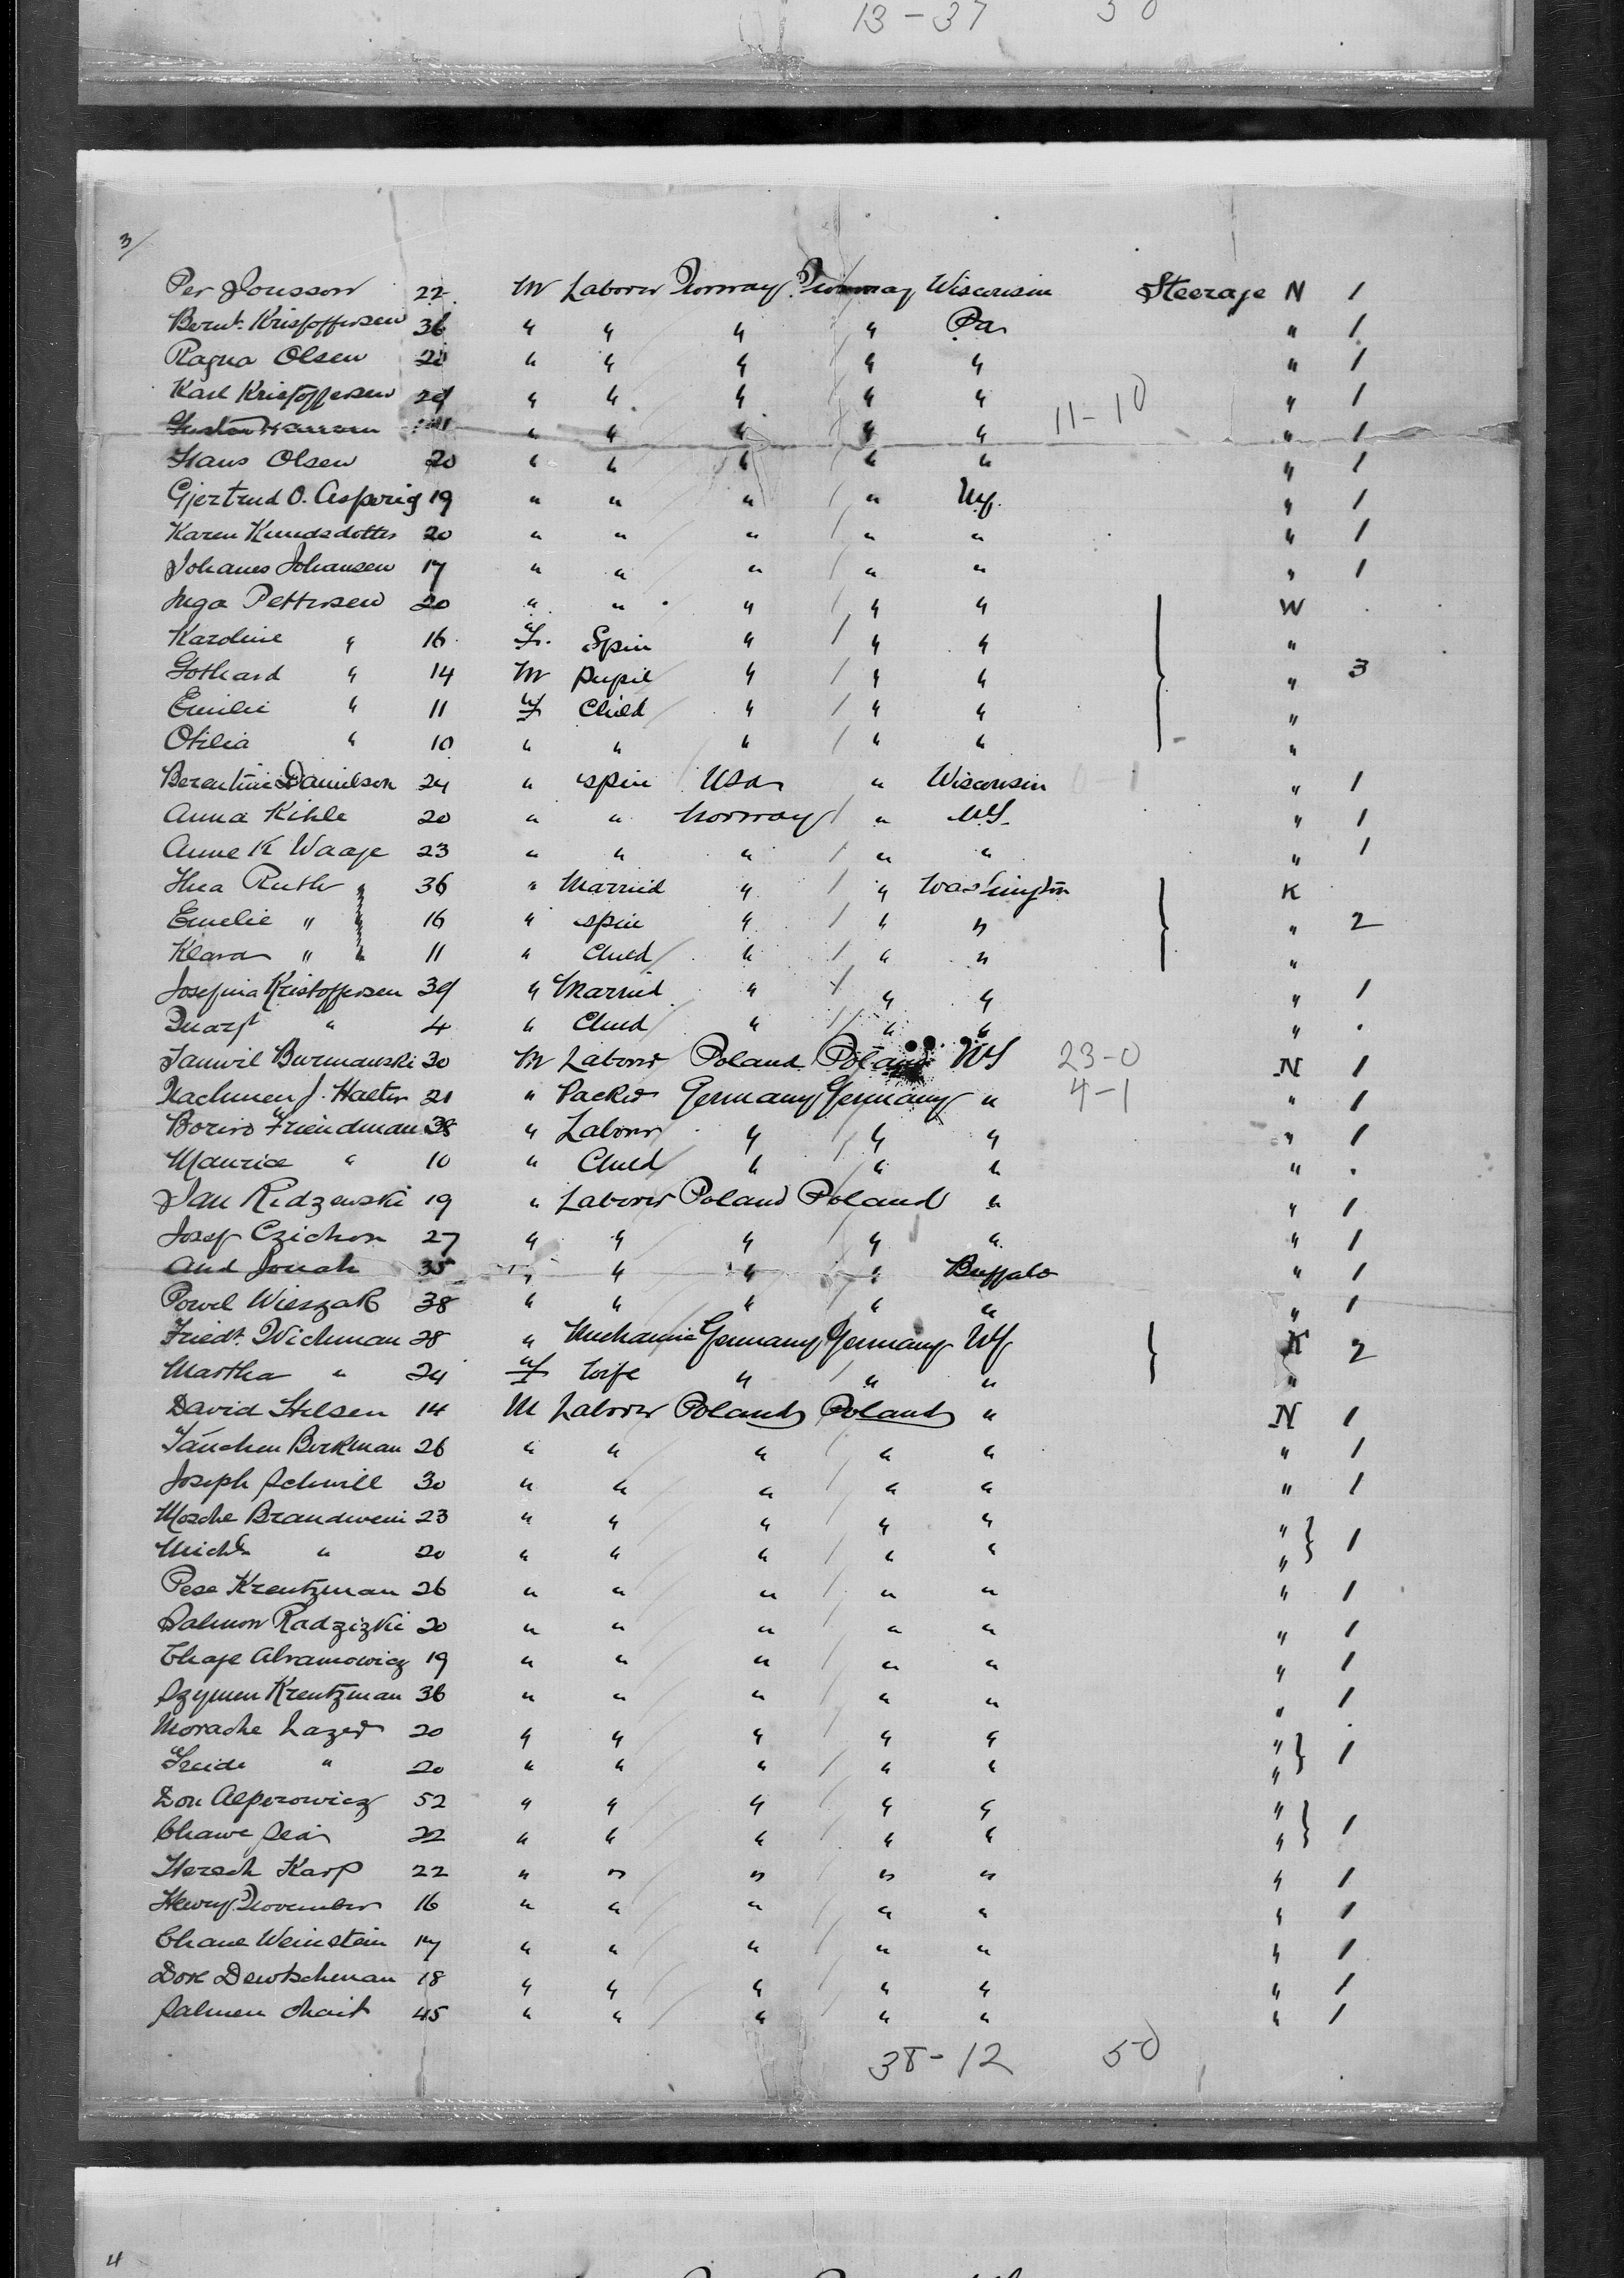 13-37 50
3/
Per Jonsson 22 M Laborer Norway Norway Wisconsin Steerage N 1
Bernt Kristoffersen 36 " " " " Pa " 1
Ragna Olsen 20 " " " " " " 1
Karl Kristoffersen 29 " " " " " 11-10 " 1
" " " " " " 1
Hans Olsen 20 " " " " " " 1
Gjertrud O. Asperig 19 " " " " NY. " 1
Karen Knudsdotter 20 " " " " " " 1
Johanes Johansen 17 " " " " " " 1
Inga Pettersen 20 " " " " " W
Karoline " 16 F. Spin " " " "
Gothard " 14 M pupil " " " " 3
Emilie " 11 F Child " " " "
Otilia " 10 " " " " " "
Berentine Danielson 24 " spin USA " Wisconsin 0-1 " 1
Anna Kihle 20 " " Norway " NY. " 1
Anne K Waage 23 " " " " " " 1
Thea Ruth " 36 " Married " " Washington K
Emelie " " 16 " spin " " " " 2
Klara " " 11 " Child " " " "
Josefina Kristoffersen 39 " Married " " " " 1
" 4 " Child " " " " .
Samuil Burmanski 30 M Laborer Poland Poland NY 23-0 N 1
Nachmen J. Halter 21 " Packer Germany Germany " 4-1 " 1
Boriro Friendman 38 " Laborer " " " " 1
Maurice " 10 " Child " " " " .
Jan Ridzewski 19 " Laborer Poland Poland " " 1
Josef Czichon 27 " " " " " " 1
And Jonah 35 " " " " Buffalo " 1
Powel Wieszak 38 " " " " " " 1
Friedr. Wichman 28 " Mechanic Germany Germany NY K 2
Martha " 24 F Wife " " " "
David Hilsen 14 M Laborer Poland Poland " N 1
Tauchen Berkman 26 " " " " " " 1
Joseph Schwill 30 " " " " " " 1
Mosche Brandwein 23 " " " " " " 1
Michle " 20 " " " " " "
Pese Krentzman 26 " " " " " " 1
Salmon Radzizki 20 " " " " " " 1
Chaje Abramowicz 19 " " " " " " 1
Szymen Krentzman 36 " " " " " " 1
Morache Lazer 20 " " " " " " 1
Freide " 20 " " " " " "
Don Alperowicz 52 " " " " " " 1
Chawe 22 " " " " " "
Hersch Karp 22 " " " " " " 1
Henry November 16 " " " " " " 1
Chane Weinstein 17 " " " " " " 1
Dore Dewtschman 18 " " " " " " 1
Salmen Chait 45 " " " " " " 1
38-12 50
4